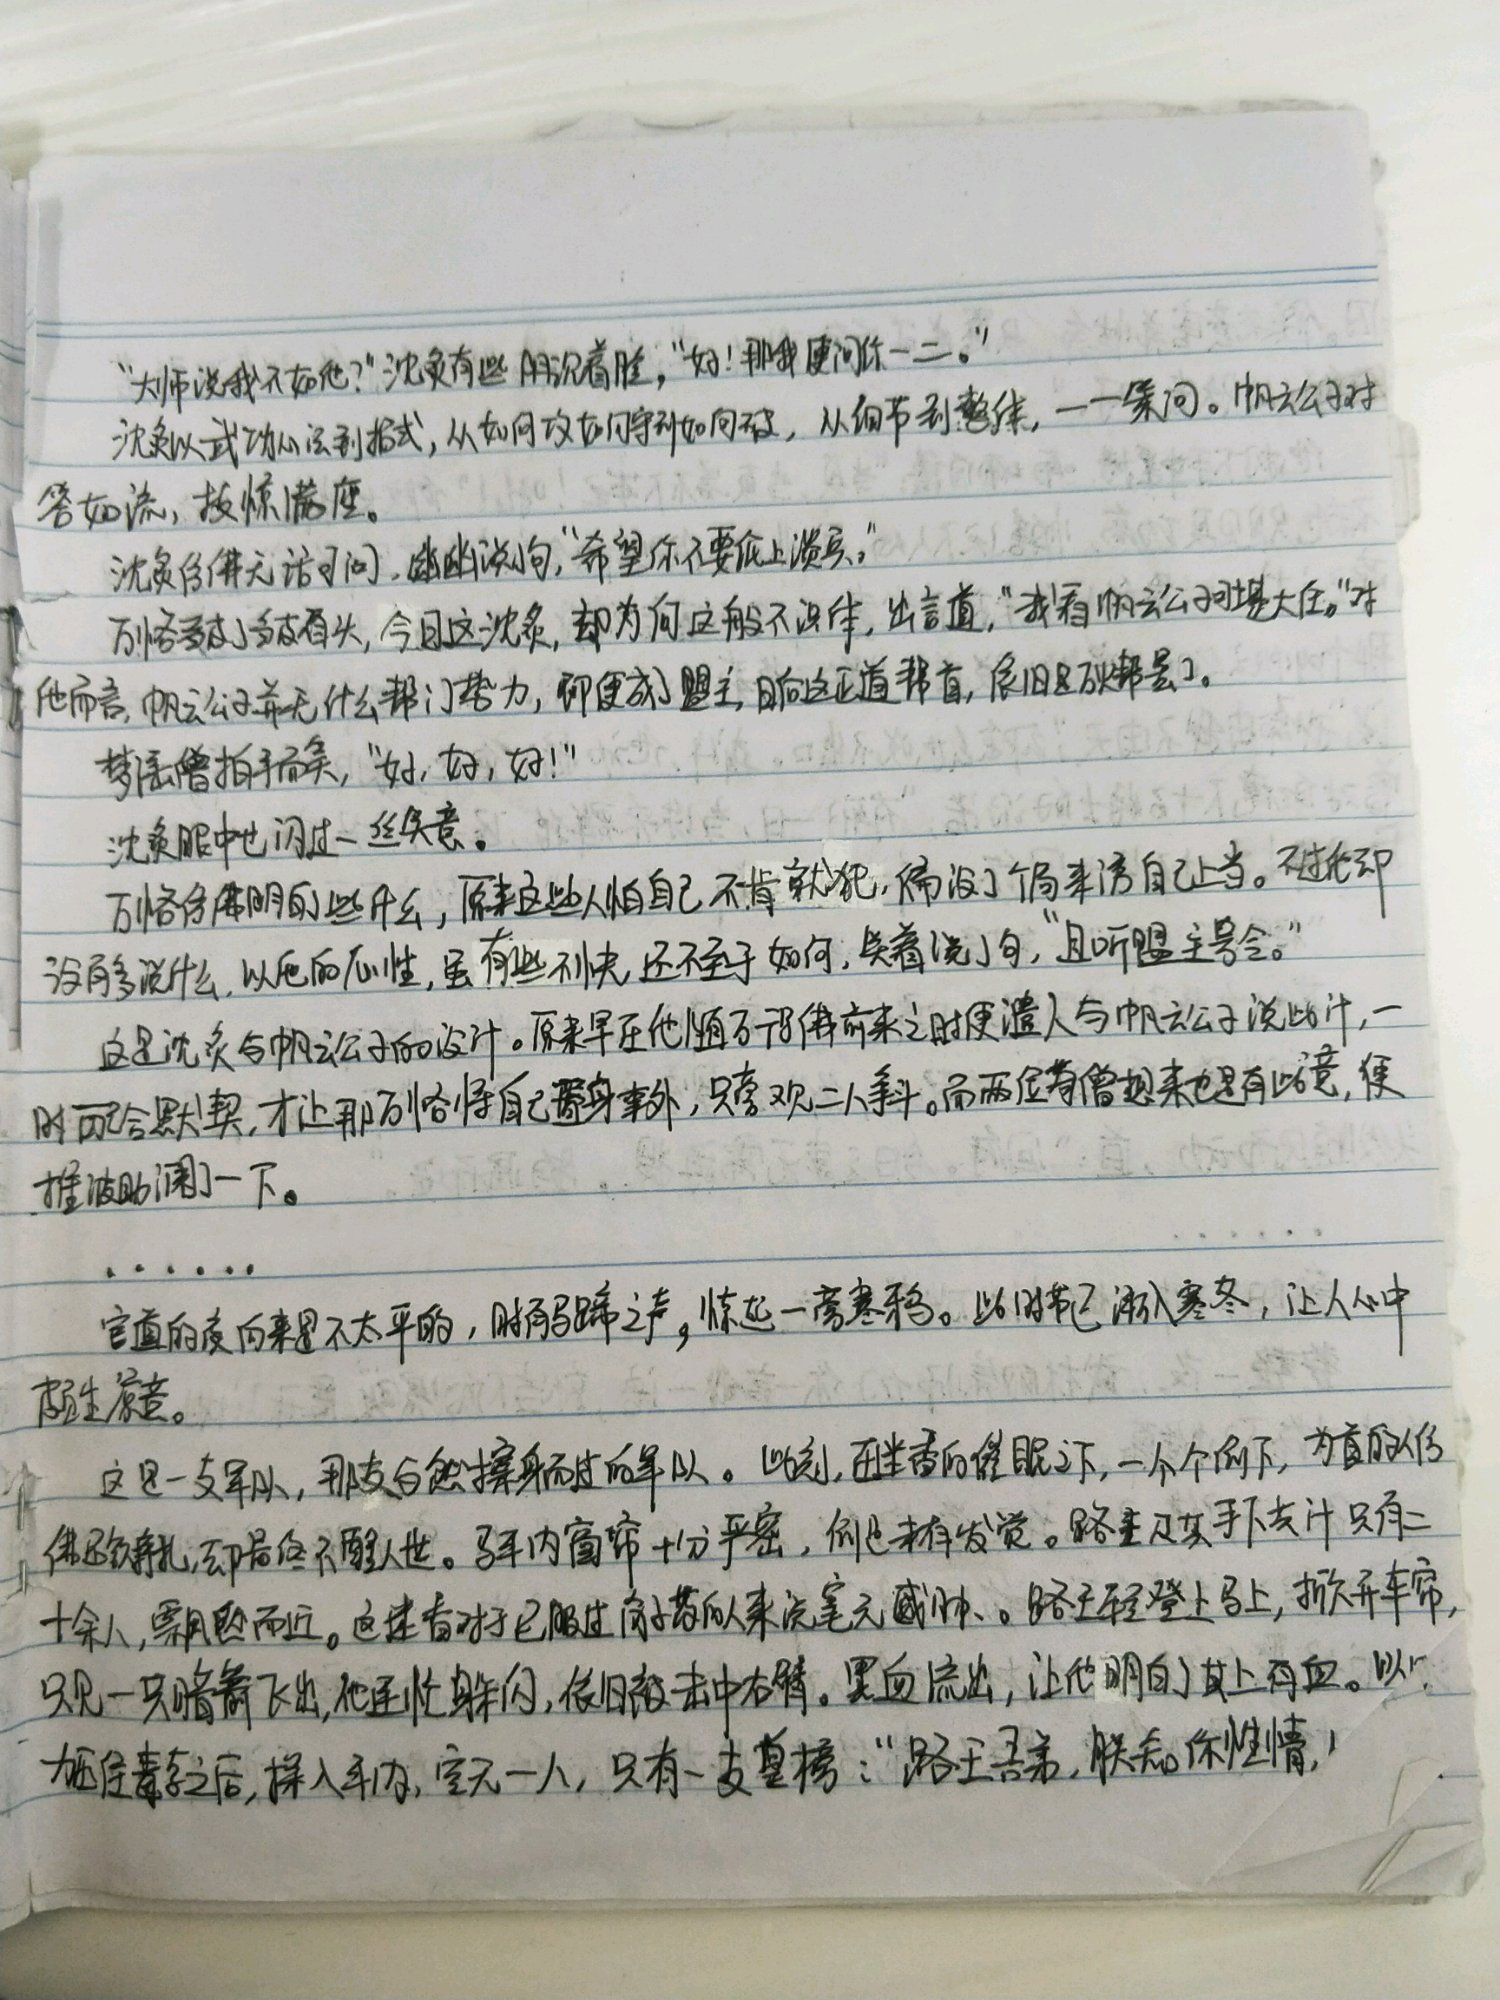 “大师说我不如他？”沈炙有些阴沉着脸，“好！那我便问你一二。”
沈炙以武功心法到招式，从如何攻如何守到如何破，从细节到整体，一一条问。帆云公子对
答如流，技惊满座。
沈炙仿佛无话可问，幽幽说了句，“希望你不要纸上谈兵。”
万恪皱了皱眉头，今日这沈炙，却为何这般不识体，出言道，“我看帆云公子可堪大任。”对
他而言，帆云公子并无什么帮门势力，即便成了盟主，日后这正道帮首，依旧是万帮罢了。
梦瑶僧拍手而笑，“好，好，好！”
沈炙眼中也闪过一丝笑意。
万恪仿佛明白了些什么，原来这些人怕自己不肯就犯，倒设了个局来诱自己上当。不过他却
没有多说什么，以他的心性，虽有些不快，还不至于如何，笑着说了句，“且听盟主号令。”
这是沈炙与帆云公子的设计。原来早在他随万诏佛前来之时便遣人与帆云公子说此计，一
时配合默契，才让那万恪将自己置身事外，只旁观二人争斗。而两位尊僧想来也是有此意，便
推波助澜了一下。
......
官道的夜向来是不太平的，时有马蹄之声，惊起一旁寒鸦。此时节已渐入寒冬，让人心中
颇生凉意。
这是一支军队，那支与他擦身而过的军队。此刻，在迷香的催眠之下，一个个倒下，为首的人仿
佛还欲挣扎，却最终不醒人世。马车内窗帘十分严密，倒也未有发觉。路王及其手下共计只有二
十余人，飘然而近。这迷香对于已服过解药的人来说毫无威胁。路王轻登上马上，掀开车帘，
只见一只暗箭飞出，他连忙躲闪，依旧被击中右臂。黑血流出，让他明白了其上有血。以
力压住毒药之后，探入车内，空无一人，只有一支皇榜：“路王吾弟，朕知你性情，